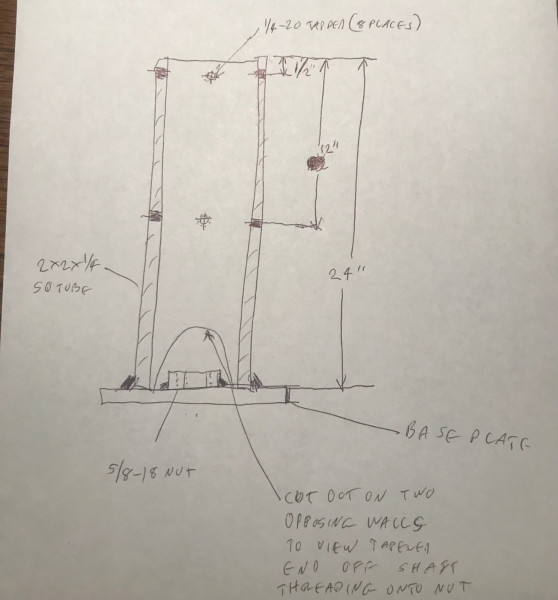 1/4-20 TAPPED (8 PLACES)
1/2"
12"
24"
2x2x1/4
SQ TUBE
BASE PLATE
5/8-18 NUT
CUT OUT ON TWO
OPPOSING WALLS
TO VIEW TAPERED
END OFF SHAFT
THREADING ONTO NUT